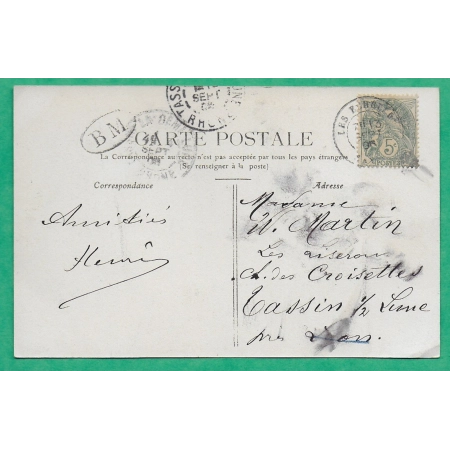 TASS
SEPT
RHONE
B M
SEPT
LES
5
CARTE POSTALE
La Correspondance au recto n'est pas acceptée par tous les pays étrangers
(Se renseigner à la poste)
Correspondance
Adresse
Amitiés
Henri
Madame
W. Martin
Les Liserons
Ch. des Croisettes
Tassin 1/2 Lune
près Lyon.